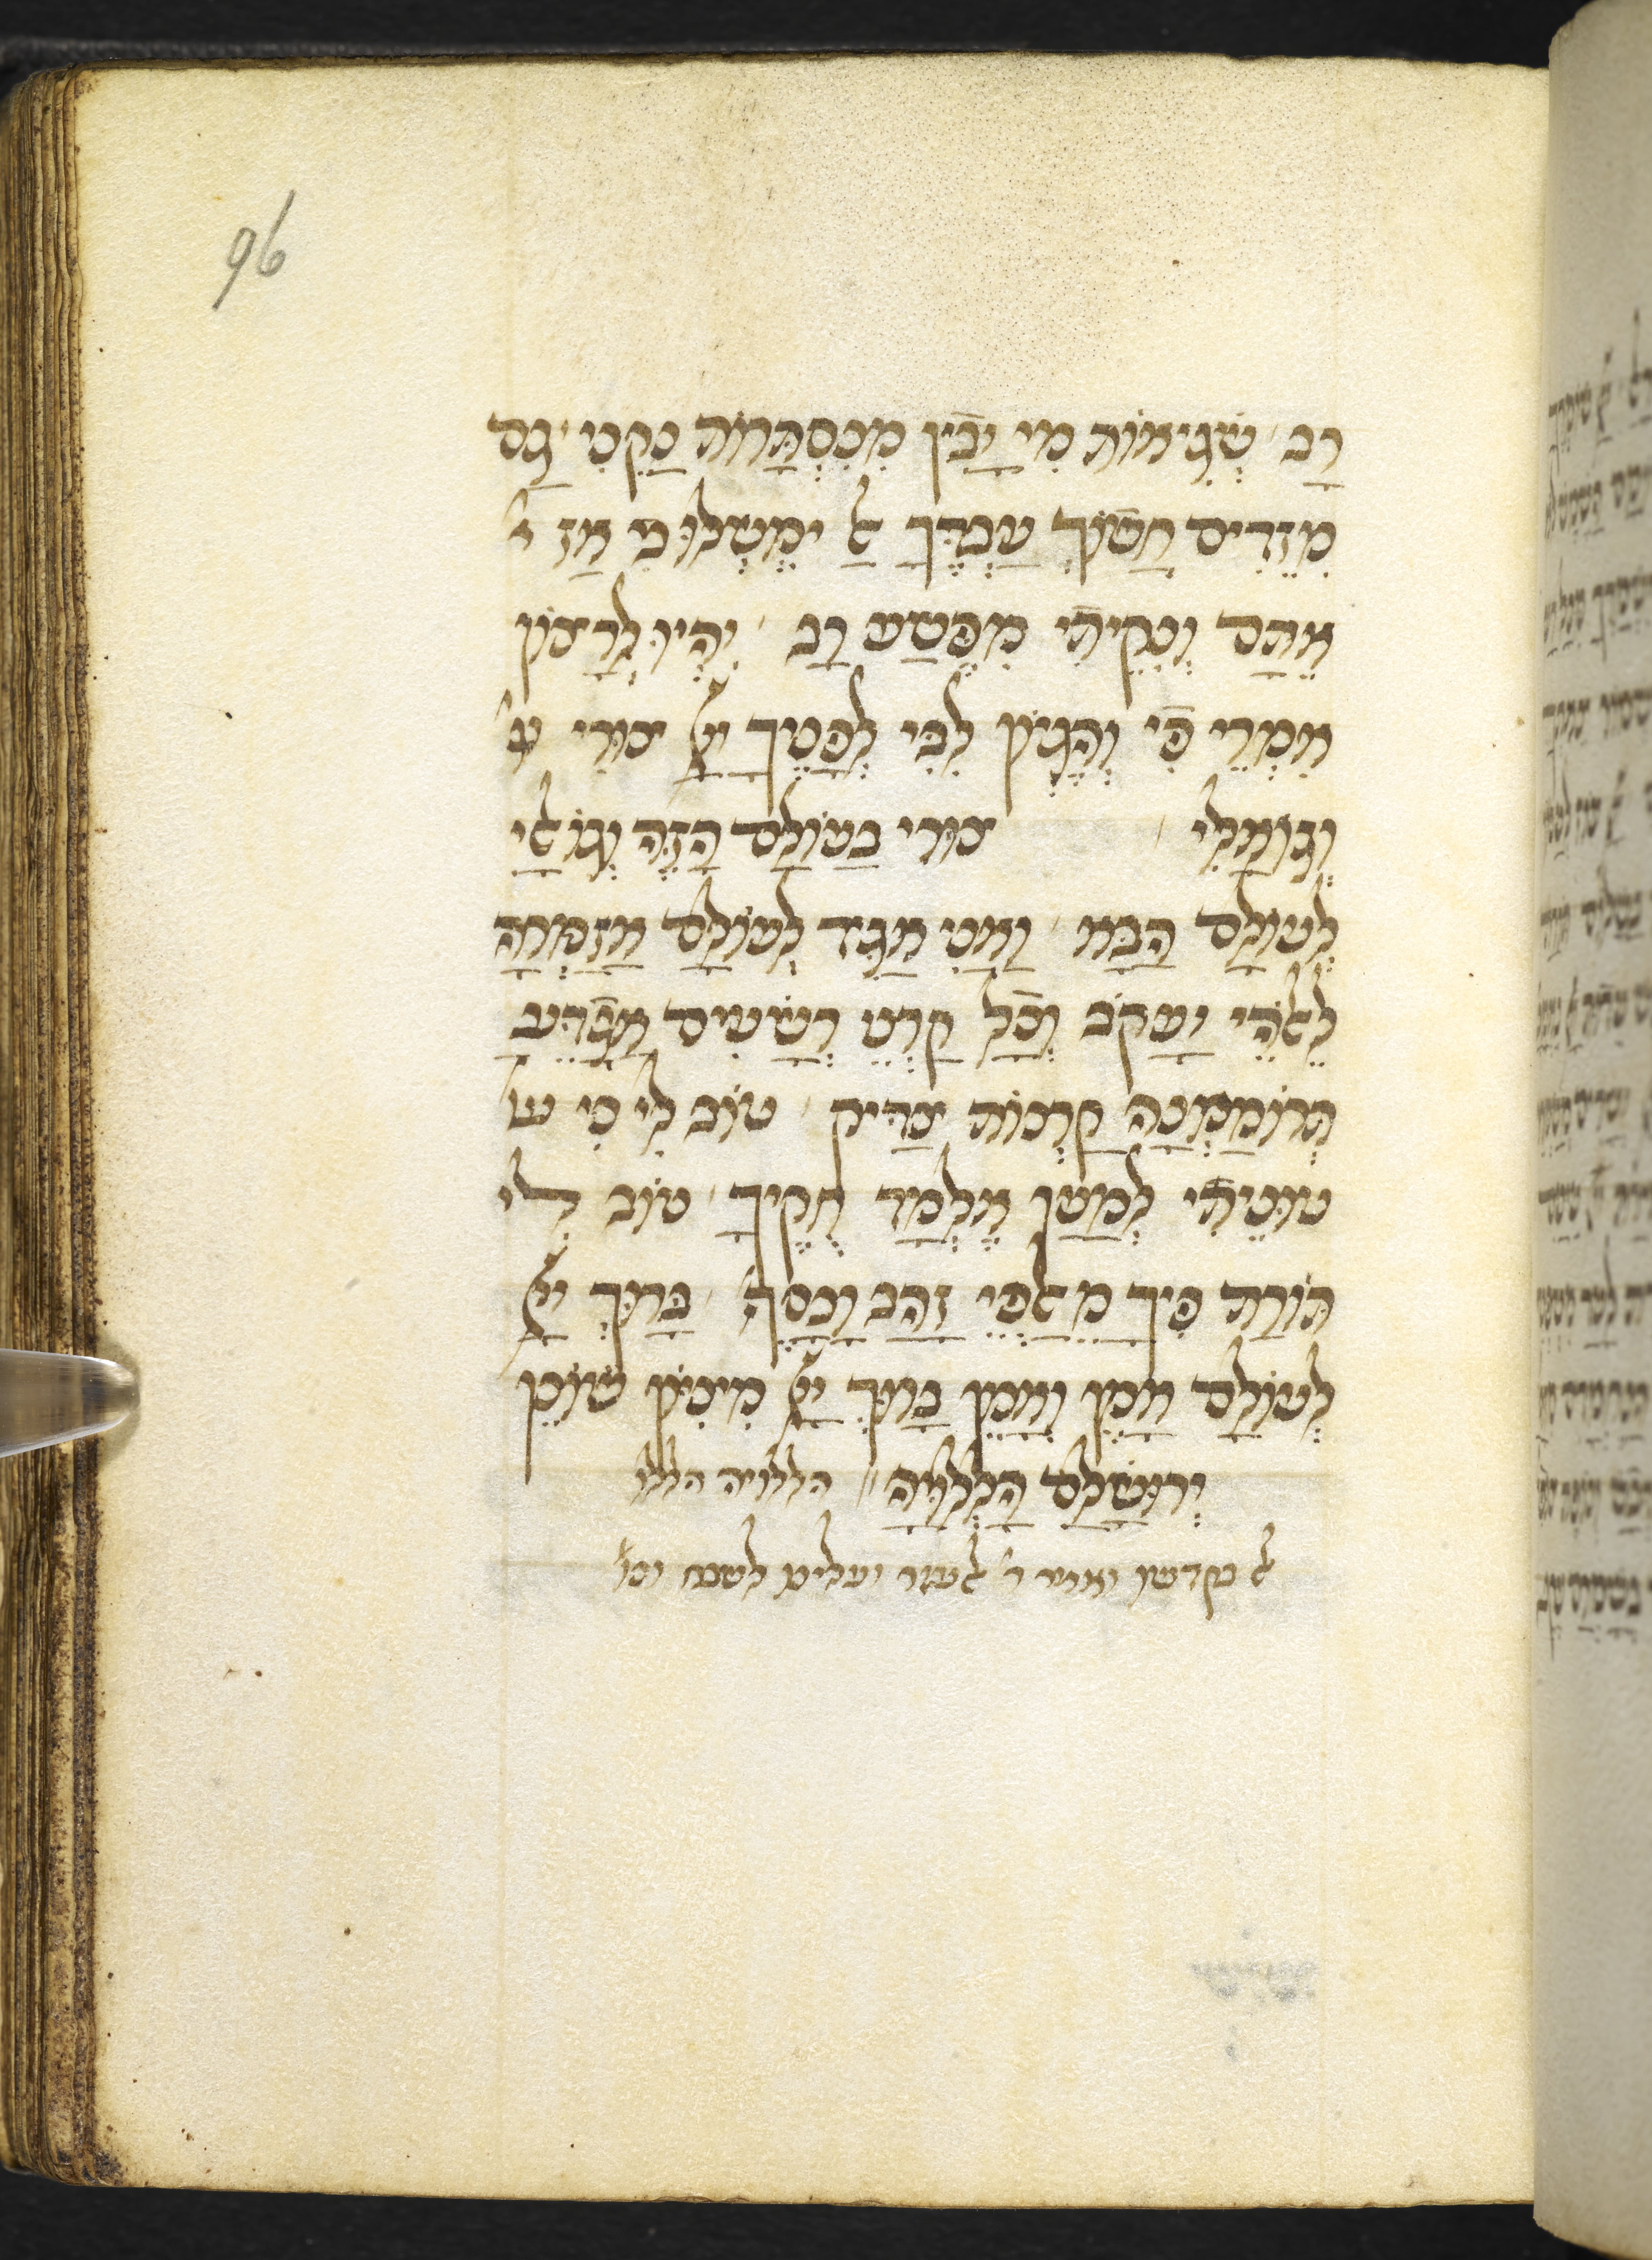 96
רָב׳ שְׁגִיאוֹת מִי יָבִין מִנִסְתָּרוֹת נַקֵנִי׳ גַם
מִזֵדִים חֲשׂוֹךְ עַבְדֶּךָ אַל יִמְשְׁלוּ בִ אָז אֿ
אֵתָם וְנִקֵיתִי מִפֶּשַׁע רָב׳ יִהְיוּ לְרָצוֹן
אִמְרֵי פִי וְהֶגְיוֹן לִבִּי לְפָנֶיךָ יֿיָ צוּרִי צֿ
וְגוֹאֲלִי׳ צוּרִי בָּעוֹלָם הַזֶּה וְגוֹאֲלִי
לְעוֹלָם הַבָּא׳ וַאֲנִי אַגִּיד לְעוֹלָם אֲזַמְּרָה
לֵאלֹהֵי יַעֲקֹב וְכָל קַרְנֵי רְשָׁעִים אֲגַדֵּעַ
תְּרוֹמַמְנָה קַרְנוֹת צַדִּיק׳ טוֹב לִי כִי עֿ
עוּנֵּיתִי לְמַעַן אֶלְמַד חֻקֶּיךָ׳ טוֹב לִי
תּוֹרַת פִּיךָ מֵאַלְפֵי זָהָב וָכָסֶף׳ בָּרוּךְ יֿיָ
לְעוֹלָם אָמֵן וְאָמֵן בָּרוּךְ יֿיָ מִצִיּוֹן שׁוֹכֵן
יְרוּשָׁלַם הַלְלוּיָהּ׳׳ הללויה הללו
אל בקדשו ואומ׳ ר׳ אלעזר ועלינו לשבח וכו׳